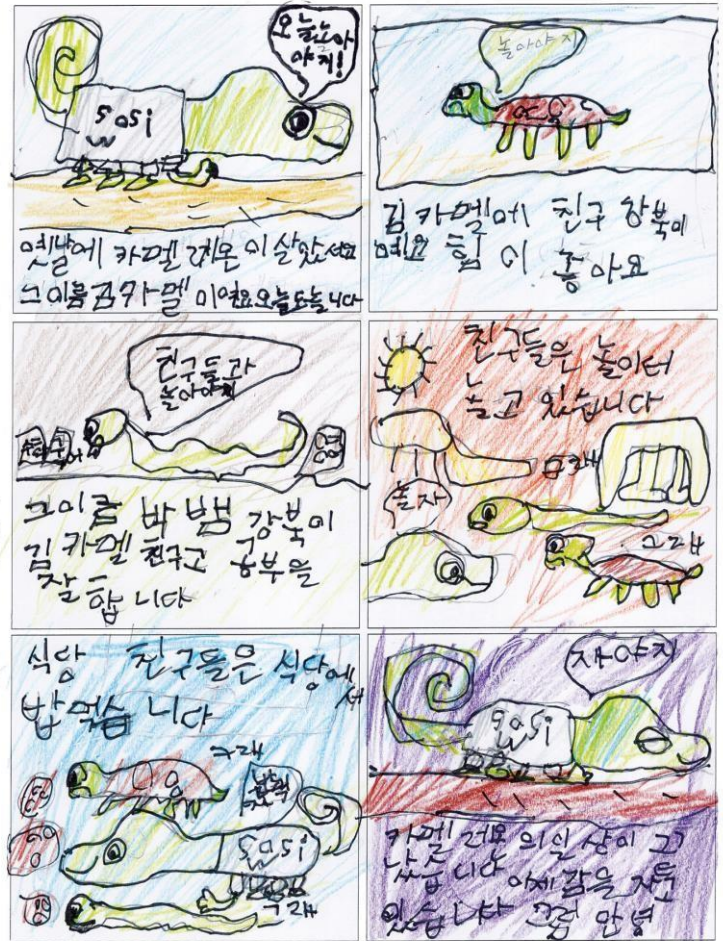 오늘노아
야지!
sosi
옛날에 카멜레온이 살았서요
그이름김카멜 이였요오늘도놀니다
놀아야지
김카멜에 친구 강북이
예요 힘이 좋아요
친구들과
놀아야지
영어
그이름 박뱀 강북이
김카멜 친구고 공부을
잘 합니다
친구들은 놀이터
놀고 있습니다
그래
놀자
그래
식당 친구들은 식당에서
밥먹습니다
그래
sosi
그래
자야지
sosi
카멜레온의일상이 끝
났습니다 이제잠을 자고
있습니다 그럼 안녕